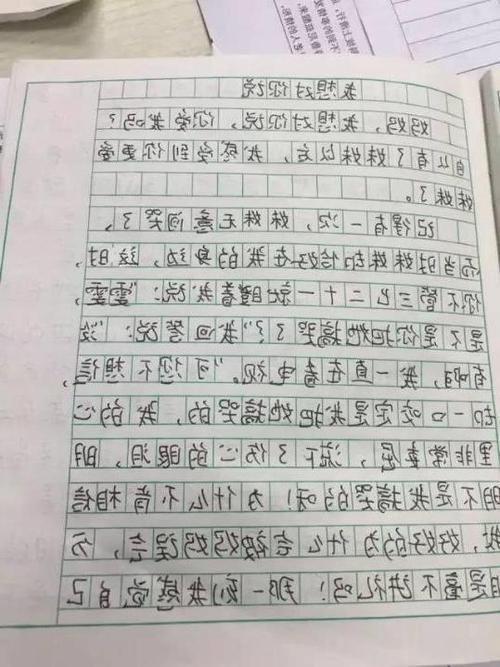 我想对你说
妈妈，我想对你说，你爱我吗？
自从有了妹妹以后，我感到你更爱
妹妹了。
记得有一次，妹妹无意间哭了，
而当时妹妹却恰好在我的身边，这时，
你不管三七二十一就瞪着我说：“雯雯，
是不是你把她搞哭了？”我回答说：“没
有啊，我一直在看电视。”可您不想信，
却一口咬定是我把她搞哭的，我的心
里非常委屈，流下了伤心的眼泪，明
明不是我搞哭的呀！为什么不肯相信
我，好好的为什么会被妈妈误会，分
明是毫不讲礼吗！那一刻我感觉自己